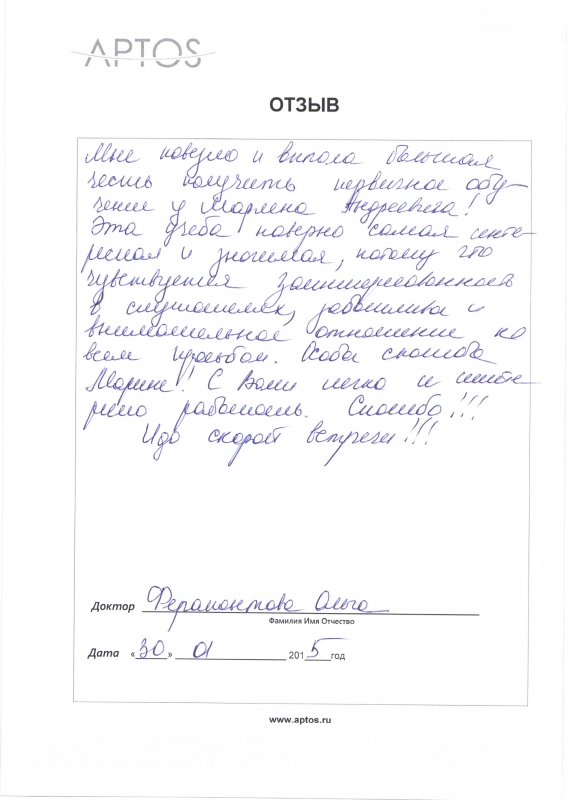 APTOS
ОТЗЫВ
Мне повезло и выпала большая
честь получить первичное обу-
чение у Марлена Андреевича!
Эта учеба наверно самая инте-
ресная и значимая, потому что
чувствуется заинтересованность
в слушателях, заботливое и
внимательное отношение ко
всем просьбам. Особо спасибо
Марине! С Вами легко и инте-
ресно работать. Спасибо!!!
И до скорой встречи!!!
Доктор Ферапонтова Ольга
Фамилия Имя Отчество
Дата «30» 01 2015 год
www.aptos.ru